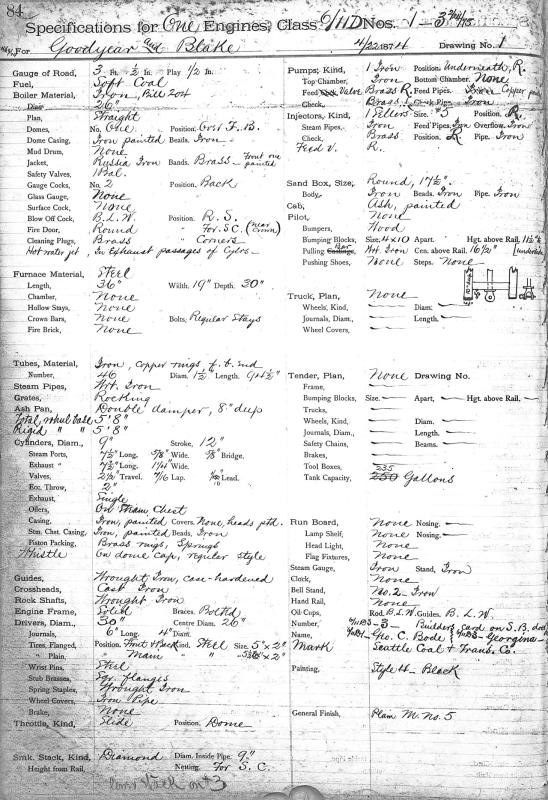 84
Specifications for One Engines, Class 6/11D Nos. 1 - 3
For Goodyear and Blake 4/22/1874 Drawing No. 1
Gauge of Road, 3 Ft. ½ In. Play ½ In.
Fuel, Soft Coal
Boiler Material, Iron,
Diam. 26"
Plan, Straight
Domes, No. One Position. Over F. B.
Dome Casing, Iron painted Beads. Iron
Mud Drum, None
Jacket, Russia Iron Bands. Brass - Front one painted
Safety Valves, 1 Bal.
Gauge Cocks, No. 2 Position, Back
Glass Gauge, None
Surface Cock, None
Blow Off Cock, B. L. W. Position. R. S.
Fire Door, Round " For S.C. (near Crown)
Cleaning Plugs, Brass " Corners
Hot water jet. In Exhaust passages of Cylrs.
Furnace Material, Steel
Length, 36" Width. 19" Depth. 30"
Chamber, None
Hollow Stays, None
Crown Bars, None Bolts, Regular Stays
Fire Brick, None
Tubes, Material, Iron, copper rings f. b. end
Number, 46 Diam. 1½" Length.
Steam Pipes, Wt. Iron
Grates, Rocking
Ash Pan, Double damper, 8" deep
Total wheel base 5' 8"
Rigid " " 5' 8"
Cylinders, Diam., 9" Stroke, 12"
Steam Ports, 7½" Long. 5/8" Wide. 5/8" Bridge.
Exhaust " 7½" Long. 1¼" Wide.
Valves, 2½" Travel. 7/16 Lap. Lead.
Ecc. Throw, 2"
Exhaust, Single
Oilers, On Steam Chest
Casing, Iron, painted Covers. None, heads ptd.
Stm. Chst. Casing, Iron, painted Beads, Iron
Piston Packing, Brass rings, Springs
Whistle On dome cap, regular style
Guides, Wrought Iron, case-hardened
Crossheads, Cast Iron
Rock Shafts, Wrought Iron
Engine Frame, Solid Braces. Bolted
Drivers, Diam., 30" Centre Diam. 26"
Journals, 6" Long. 4" Diam.
Tires, Flanged, Position. Front & Back Kind. Steel Size. 5" x 2"
" Plain, " Main " " x 2"
Wrist Pins, Steel
Stub Brasses, Sqr. flanges
Spring Staples, Wrought Iron
Wheel Covers, Iron Pipe
Brake, None
Throttle, Kind, Slide Position, Dome
Smk. Stack, Kind, Diamond Diam. Inside Pipe. 9"
Height from Rail, Netting. For S. C.
Pumps, Kind, 1 Iron Position. Underneath, R.
Top Chamber, Iron Bottom Chamber. None
Feed Cock Valve Brass R. Feed Pipes. Copper
Check, Brass, Iron
Injectors, Kind, 1 Sellers Size. #3 Position, R.
Steam Pipes, Iron Feed Pipes. Iron Overflow. Iron
Check, Brass Position. R. Pipe. Iron
Feed V. R.
Sand Box, Size, Round, 17½".
Body, Iron Beads. Iron Pipe. Iron
Cab, Ash, painted
Pilot, None
Bumpers, Wood
Bumping Blocks, Size. 4 x 10 Apart. - Hgt. above Rail,
Pulling Castings, Bar Wt. Iron Cen. above Rail. 16½"
Pushing Shoes, None Steps. None
Truck, Plan, None
Wheels, Kind, — Diam: —
Journals, Diam., — Length. —
Wheel Covers, —
Tender, Plan, None Drawing No.
Frame, —
Bumping Blocks, Size. — Apart, — Hgt. above Rail. —
Trucks, —
Wheels, Kind, — Diam. —
Journals, Diam., — Length. —
Safety Chains, — Beams. —
Brakes, —
Tool Boxes, —
Tank Capacity, 235 250 Gallons
Run Board, None Nosing. —
Lamp Shelf, None Nosing. —
Head Light, None
Flag Fixtures, None
Steam Gauge, Iron Stand, Iron
Clock, None
Bell Stand, No. 2. Iron
Hand Rail, None
Oil-Cups, Rod. B. L. W. Guides. B. L. W.
Number, 3 - Builders card on S. B. door
Name, Geo. C. Bode Georgina
Mark Seattle Coal & Transp. Co.
Painting, Style 4 - Black
General Finish, Plain M. No. 5